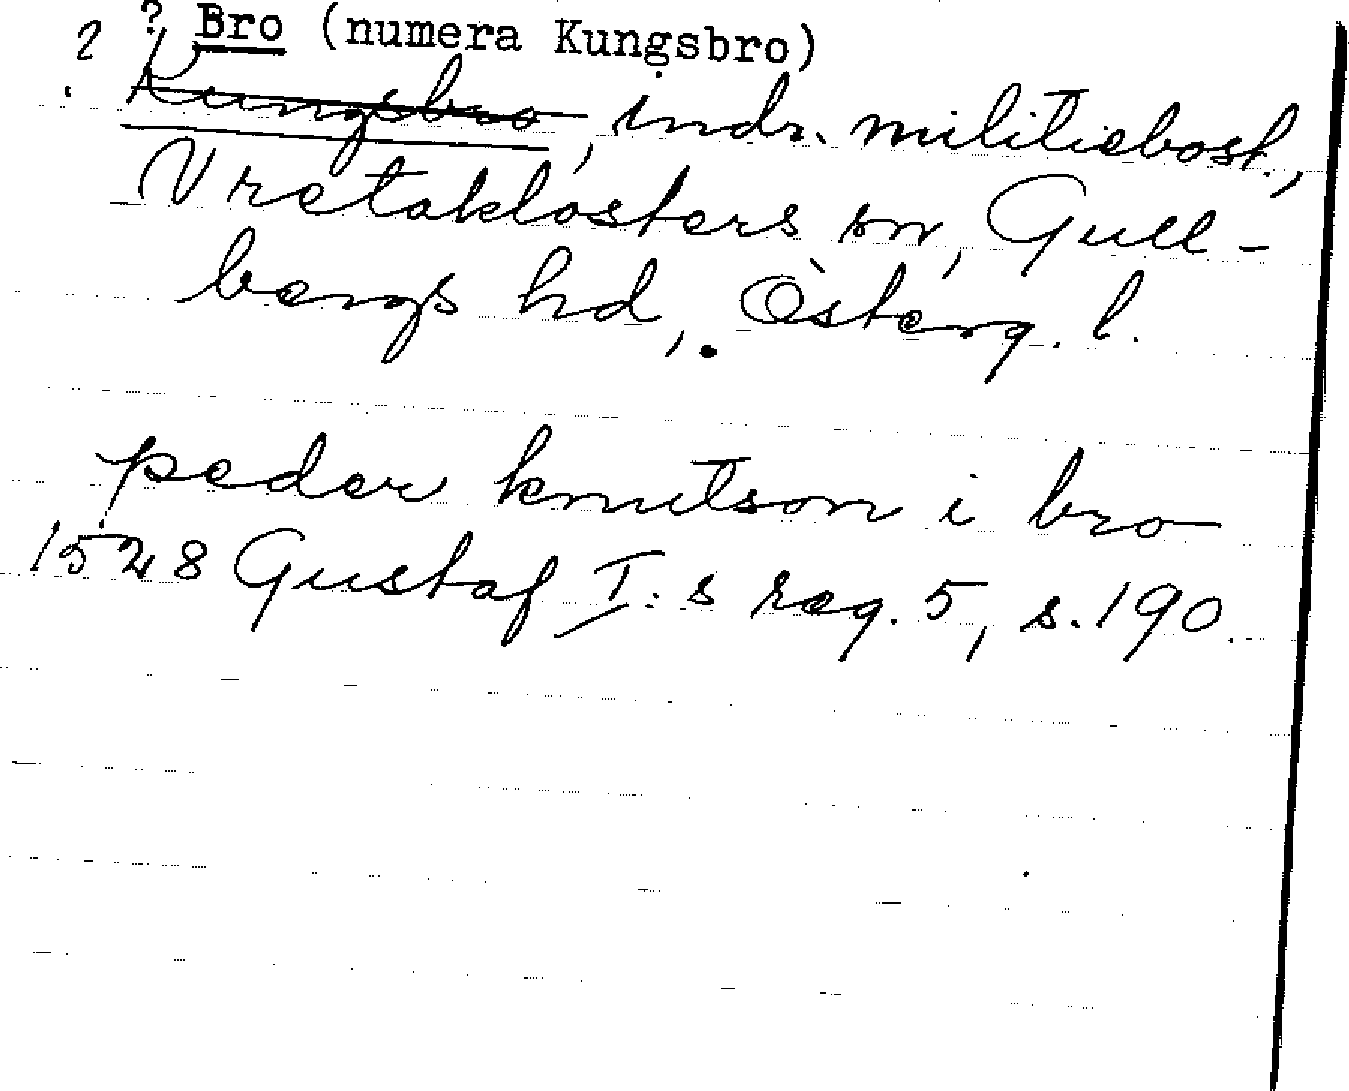 ? Bro (numera Kungsbro)
? Kungsbro, indr. militiebost.,
Vretaklosters sn, Gull-
bergs hd, Österg. l.
peder knutson i bro
1528 Gustaf I:s reg. 5, s. 190.